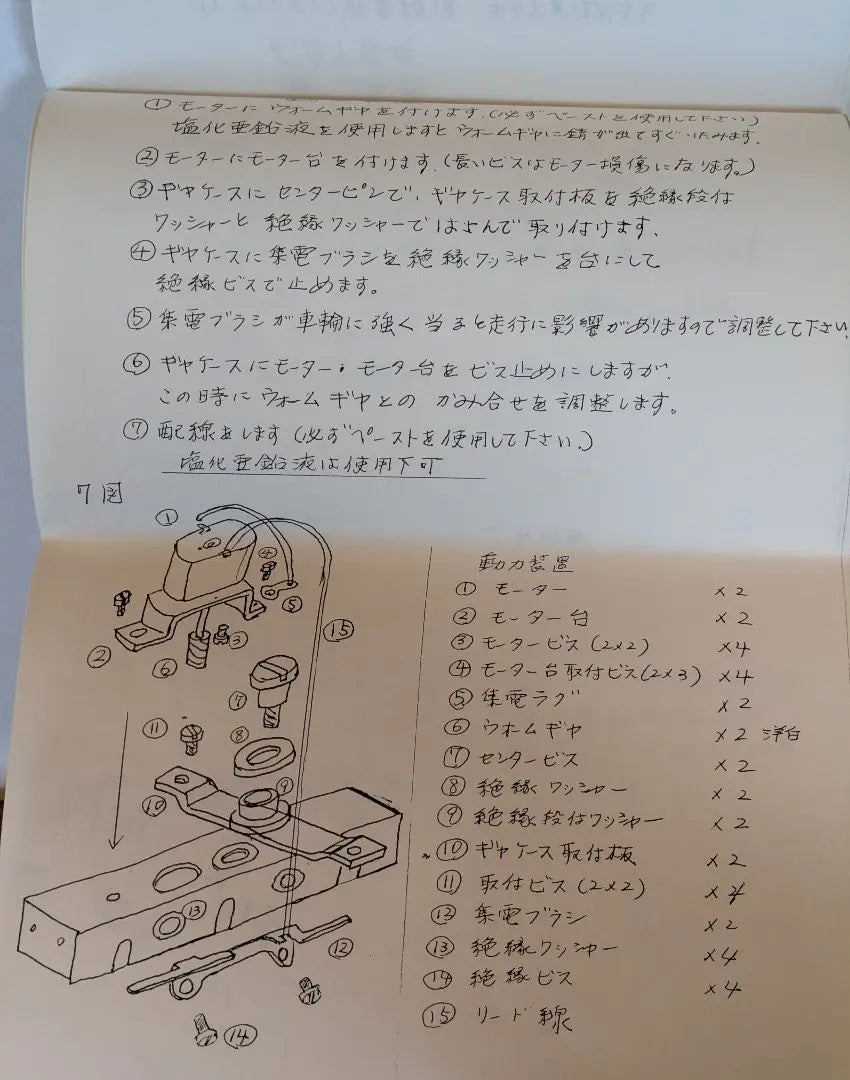 ① モーターに ウォームギヤを付けます.(必ずペーストを使用して下さい)
塩化亜鉛液を使用しますと ウォームギヤに錆が出てすぐいたみます.
② モーターにモーター台を付けます.(長いビスはモーター損傷になります。)
③ ギヤケースに センターピンで、ギヤケース取付板を絶縁段付
ワッシャーと 絶縁ワッシャーではさんで取り付けます.
④ ギヤケースに集電ブラシを絶縁ワッシャーを台にして
絶縁ビスで止めます。
⑤ 集電ブラシが車輪に強く当ると走行に影響がありますので調整して下さい.
⑥ ギヤケースにモーター・モーター台をビス止めにしますが.
この時にウォームギヤとの かみ合せを調整します。
⑦ 配線をします(必ずペーストを使用して下さい.)
塩化亜鉛液は使用不可
7図
① ④ ⑤ ② ③ ⑥ ⑮ ⑦ ⑪ ⑧ ⑨ ⑩ ⑬ ⑫ ⑭
動力装置
① モーター ×2
② モーター台 ×2
③ モータービス(2×2) ×4
④ モーター台取付ビス(2×3) ×4
⑤ 集電ラグ ×2
⑥ ウオームギヤ ×2 洋白
⑦ センタービス ×2
⑧ 絶縁ワッシャー ×2
⑨ 絶縁段付ワッシャー ×2
⑩ ギヤケース取付板 ×2
⑪ 取付ビス(2×2) ×4
⑫ 集電ブラシ ×2
⑬ 絶縁ワッシャー ×4
⑭ 絶縁ビス ×4
⑮ リード線